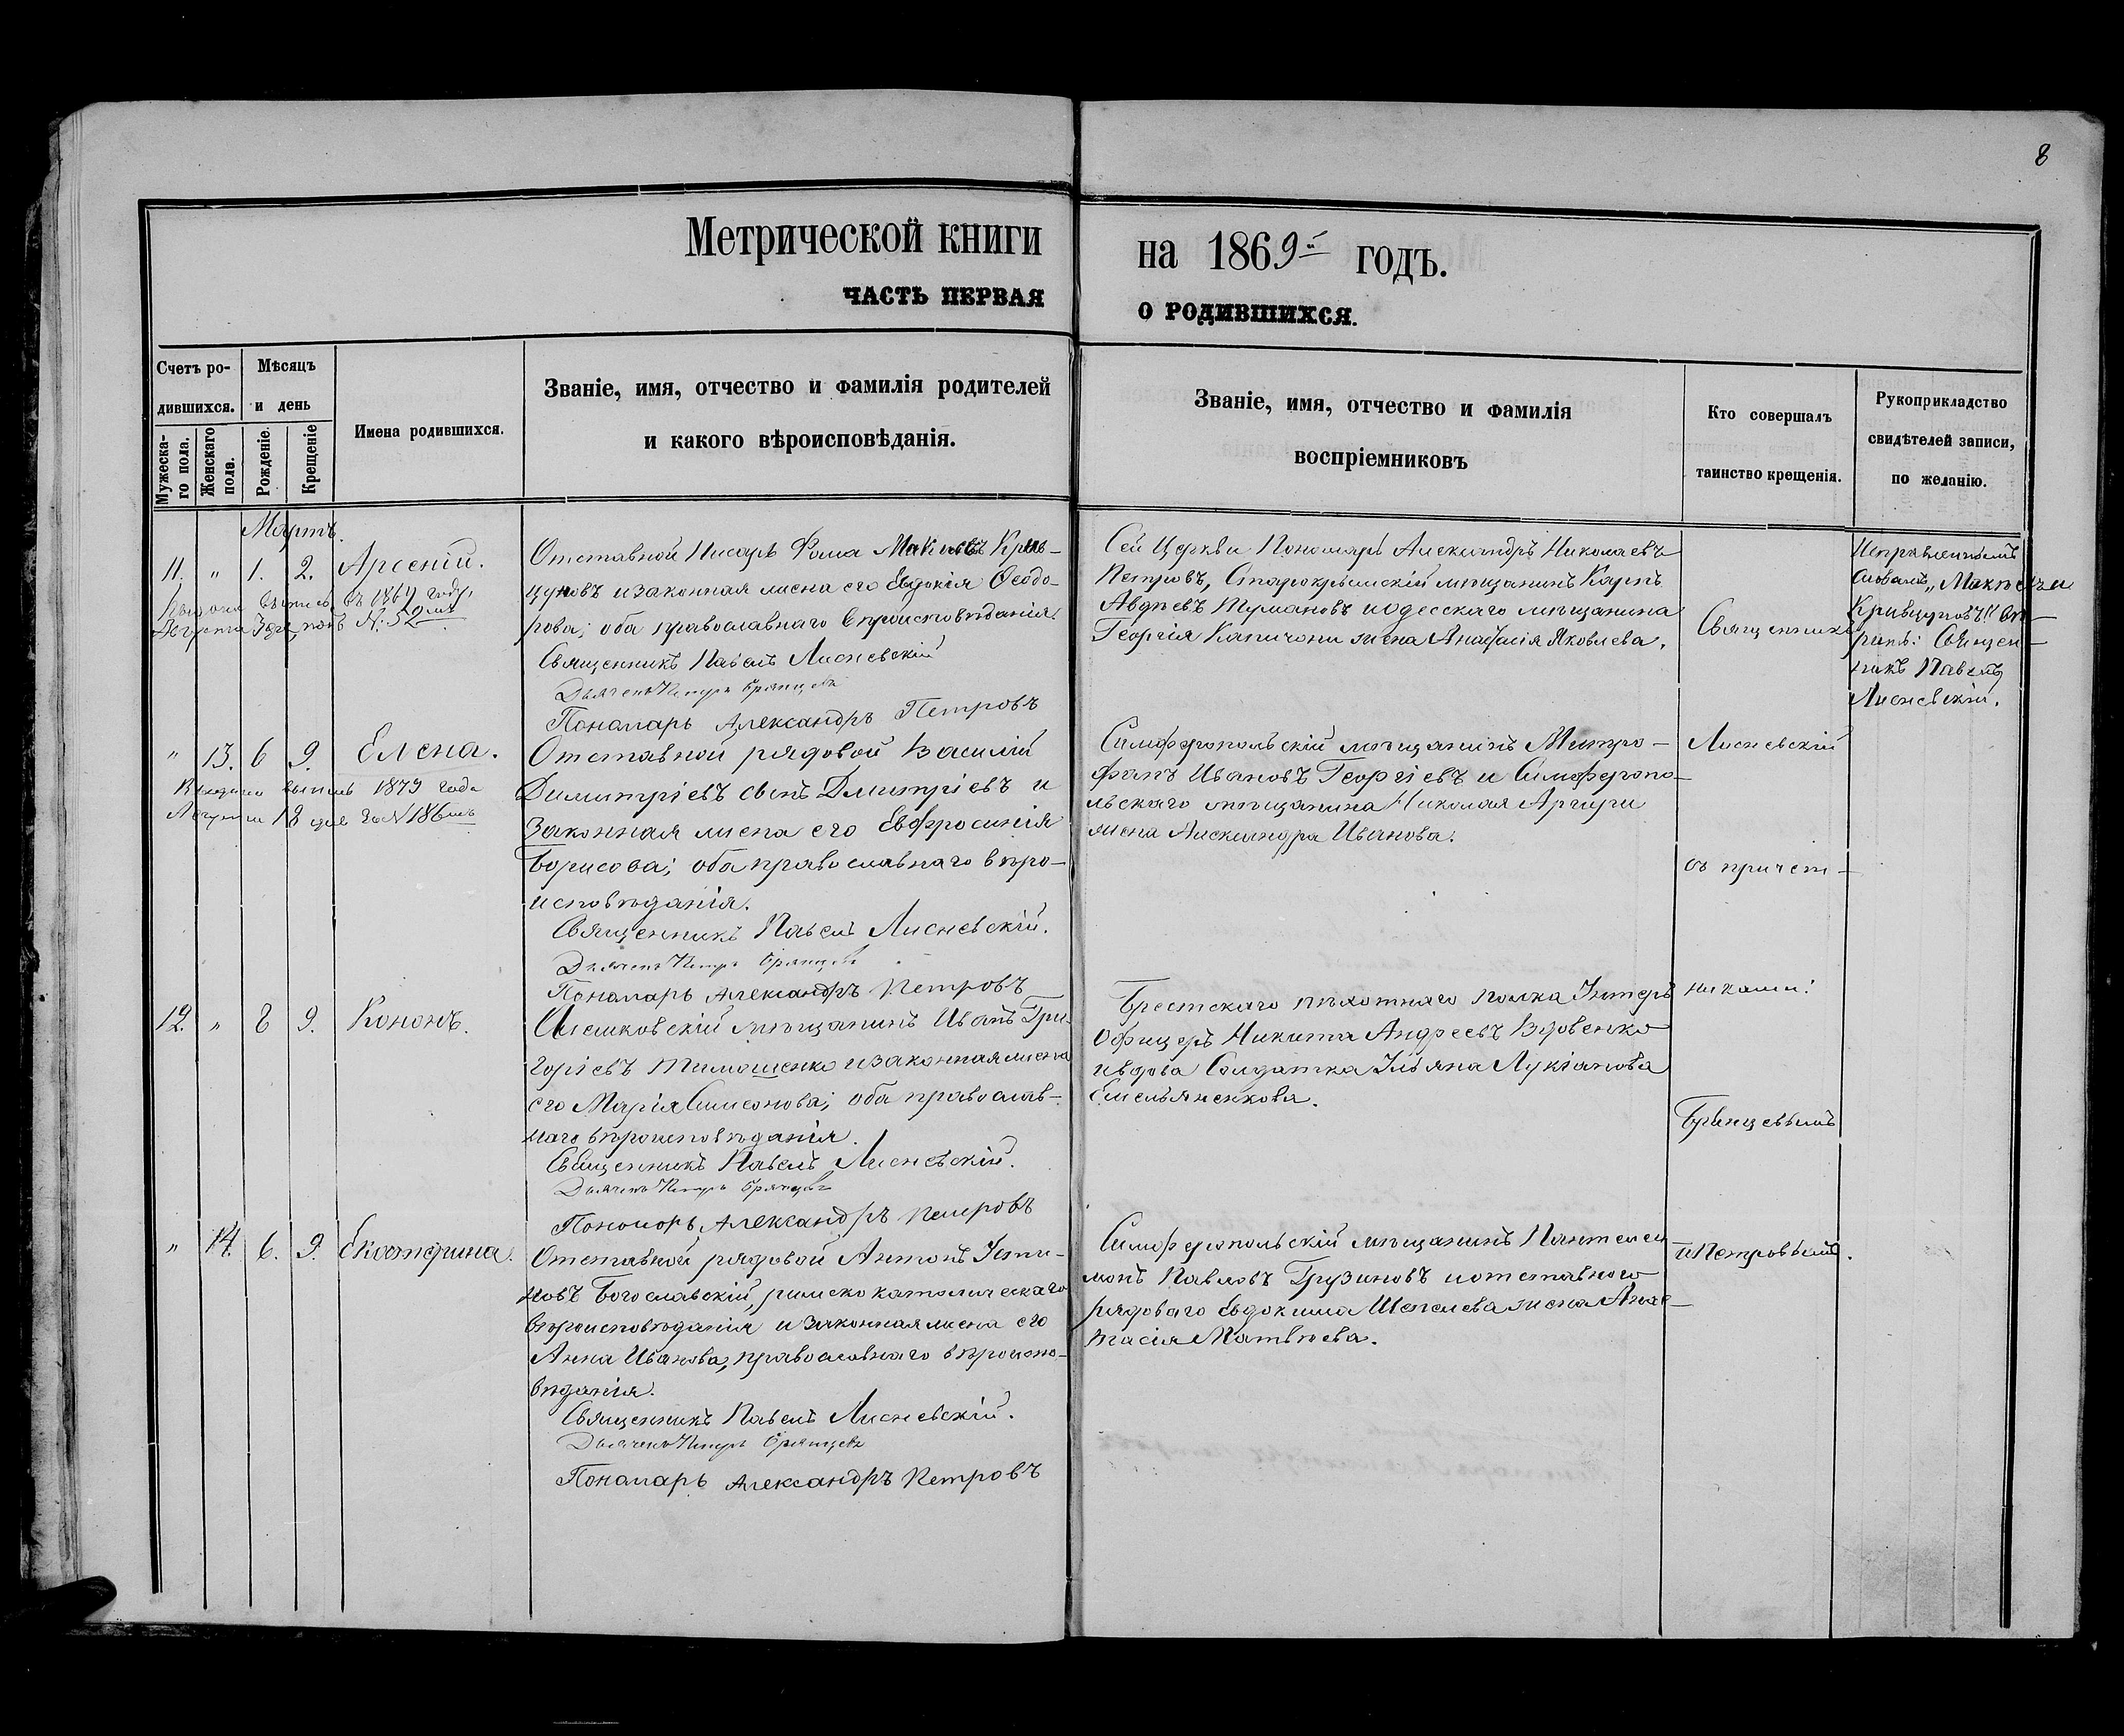 8
Метрической книги
на 1869й годъ.
ЧАСТЬ ПЕРВАЯ
О РОДИВШИХСЯ.
Счетъ ро-
дившихся.
Мужеска-
го пола.
Женскаго
пола.
Мѣсяцъ
и день
Рожденіе.
Крещеніе
Имена родившихся.
Званіе, имя, отчество и фамилія родителей
и какого вѣроисповѣданія.
Званіе, имя, отчество и фамилія
воспріемниковъ
Кто совершалъ
таинство крещенія.
Рукоприкладство
свидѣтелей записи,
по желанію.
Мартъ.
11. " 1. 2. Арсеній.
выпись въ 1869 году,
Августа подъ №: 52мъ
Отставной Писарь Фома Макѣевъ Крив-
цуновъ и законная жена его Евдокія Ѳеодо-
рова; оба православнаго вѣроисповѣданія.
Священникъ Павелъ Лисневскій
Дьячекъ Петръ Брянцевъ
Пономарь Александръ Петровъ
Сей Церкви Пономарь Александръ Николаевъ
Петровъ, Старокрымскій мѣщанинъ Карпъ
Авдѣевъ Тумановъ и одесскаго мѣщанина
Георгія Капичони жена Анастасія Яковлева.
Священникъ
Исправленнымъ
словамъ „Макѣевъ и
Кривцуновъ" вѣ-
рить: Священ-
никъ Павелъ
Лисневскій.
" 13. 6 9. Елена.
Выдана выпись 1879 года
18 дня за №186мъ
Отставной рядовой Василій
Димитріевъ сынъ Дмитріевъ и
законная жена его Евфросинія
Борисова; оба православнаго вѣро-
исповѣданія.
Священникъ Павелъ Лисневскій.
Дьячекъ Петръ Брянцевъ
Пономарь Александръ Петровъ
Симферопольскій мѣщанинъ Митро-
фанъ Ивановъ Георгіевъ и Симферопо-
льскаго мѣщанина Николая Аргири
жена Александра Иванова.
Лисневскій
съ причет-
12. " 8 9. Кононъ.
Алешковскій мѣщанинъ Иванъ Гри-
горіевъ Тимошенко и законная жена
его Марія Симеонова; оба православ-
наго вѣроисповѣданія.
Священникъ Павелъ Лисневскій.
Дьячекъ Петръ Брянцевъ
Пономорь Александръ Петровъ
Брестскаго пѣхотнаго полка Унтеръ
Офицеръ Никита Андреевъ Вдовенко
и вдова Солдатка Уліяна Лукіанова
Емельяненкова.
никами:
Брянцевымъ
" 14. 6. 9. Екатерина.
Отставной рядовой Антонъ Усти-
новъ Богославскій, римско католическаго
вѣроисповѣданія и законная жена его
Анна Иванова, православнаго вѣроиспо-
вѣданія.
Священникъ Павелъ Лисневскій.
Дьячекъ Петръ Брянцевъ
Пономарь Александръ Петровъ
Симферопольскій мѣщанинъ Пантелеи
монъ Павловъ Грузиновъ и отставного
рядоваго Евдокима Шепелева жена Анас-
тасія Матвѣева.
и Петровымъ.